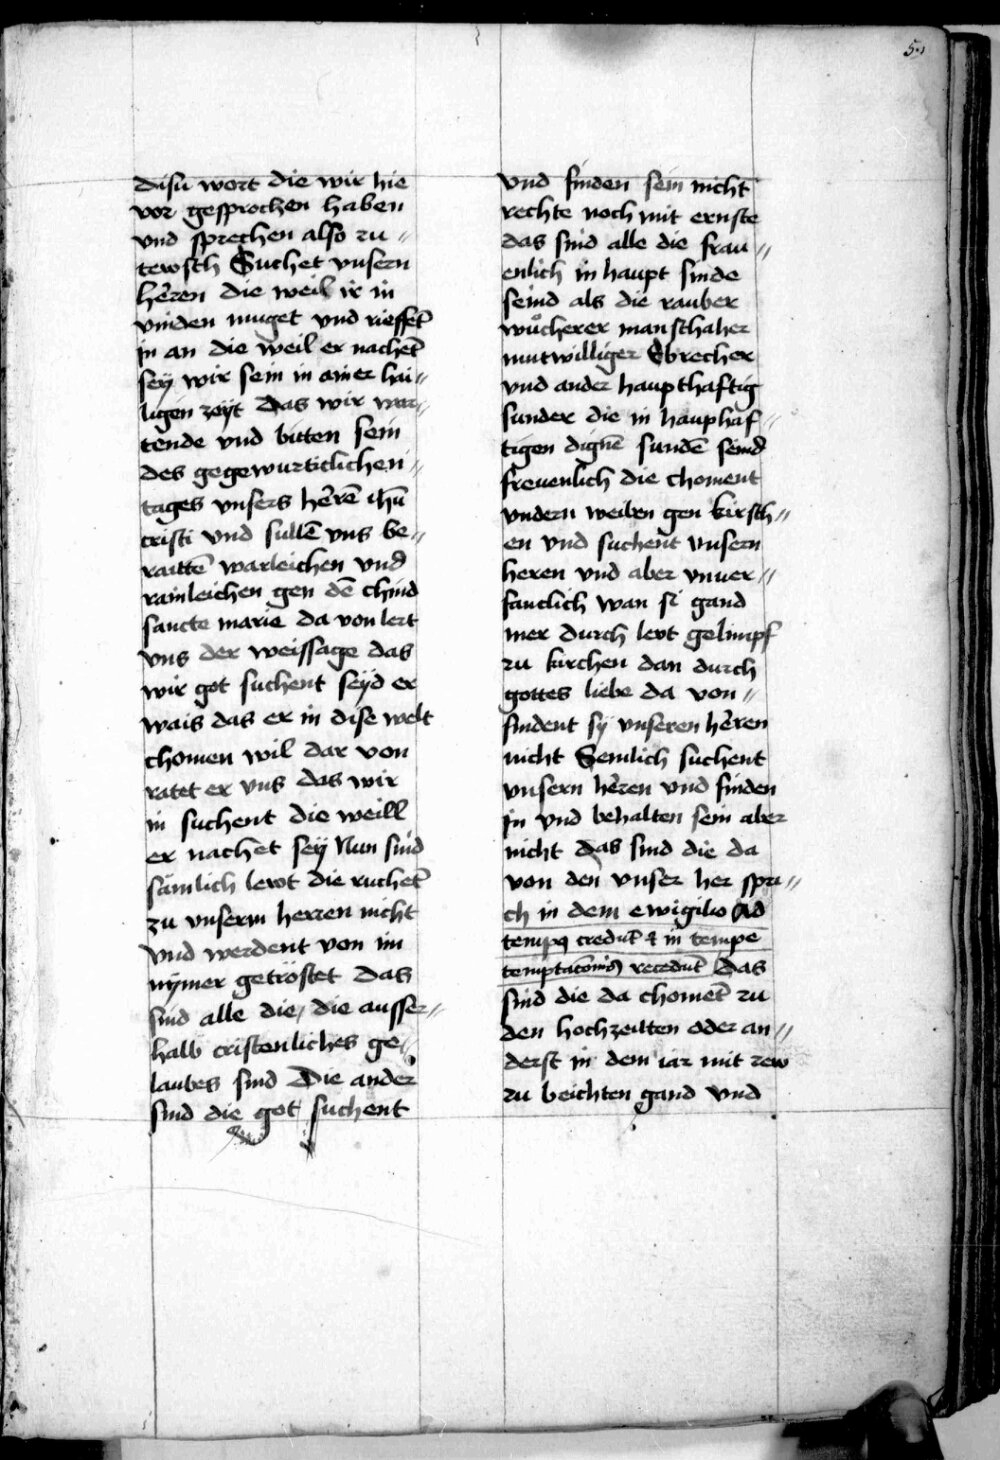 5.
disu wort die wir hie
vor gesprochen haben
vnd sprechen also zu〃
tewsch Suchet vnsern
herren die weil ir in
vinden muget vnd rieffet̄
in an die weil er nachet̄
seÿ wir sein in ainer hai〃
ligen zeÿt das wir war〃
tende vnd bitten sein
des gegewurticlichen〃
tages vnsers herrē ihū
cristi vnd sullē vns be〃
raittē warleichen vnd
rainleichen gen dē chind
sancte marie da von lert
vns der weissage das
wir got suchent seÿd er
wais das er in dise welt
chomen wil dar von
ratet er vns das wir
in suchent die weill
er nachet seÿ Nun sind
sämlich lewt die ruchet̄
zu vnserm herren nicht
vnd werdent von im
nÿmer getröstet das
sind alle die, die ausser〃
halb cristenliches ge〃
laubes sind Die ander
sind die got suchent
vnd finden sein nicht
rechte noch mit ernste
das sind alle die frau〃
enlich in haupt sinde
seind als die rauber
wůcherer manschaher
mutwilliger Ebrecher
vnd ander haupthaftig
sunder die in hauphaf〃
tigen dignē sundē seind
freuenlich die choment
vndern weilen gen kirsch〃
en vnd suchent vnsern
heren vnd aber vnuer〃
fanclich wan si gand
mer durch lewt gelimpf
zu kirchen dan durch
gottes liebe da von〃
findent sÿ vnseren herren
nicht Semlich suchent
vnsern herren vnd finden
in vnd behalten sein aber
nicht das sind die da
von den vnser her spri〃
ch in dem ewigilio Ad
tempꝯ credūt ⁊ in tempe
temptatōnis recedūt Das
sind die da chomet̄ zu
den hochzeitten oder an〃
derst in dem iar mit rew
zu beichten gand vnd